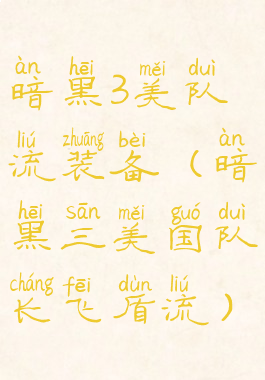 àn hēi měi duì
暗黑3美队
liú zhuāng bèi àn
流装备（暗
hēi sān měi guó duì
黑三美国队
cháng fēi dùn liú
长飞盾流）